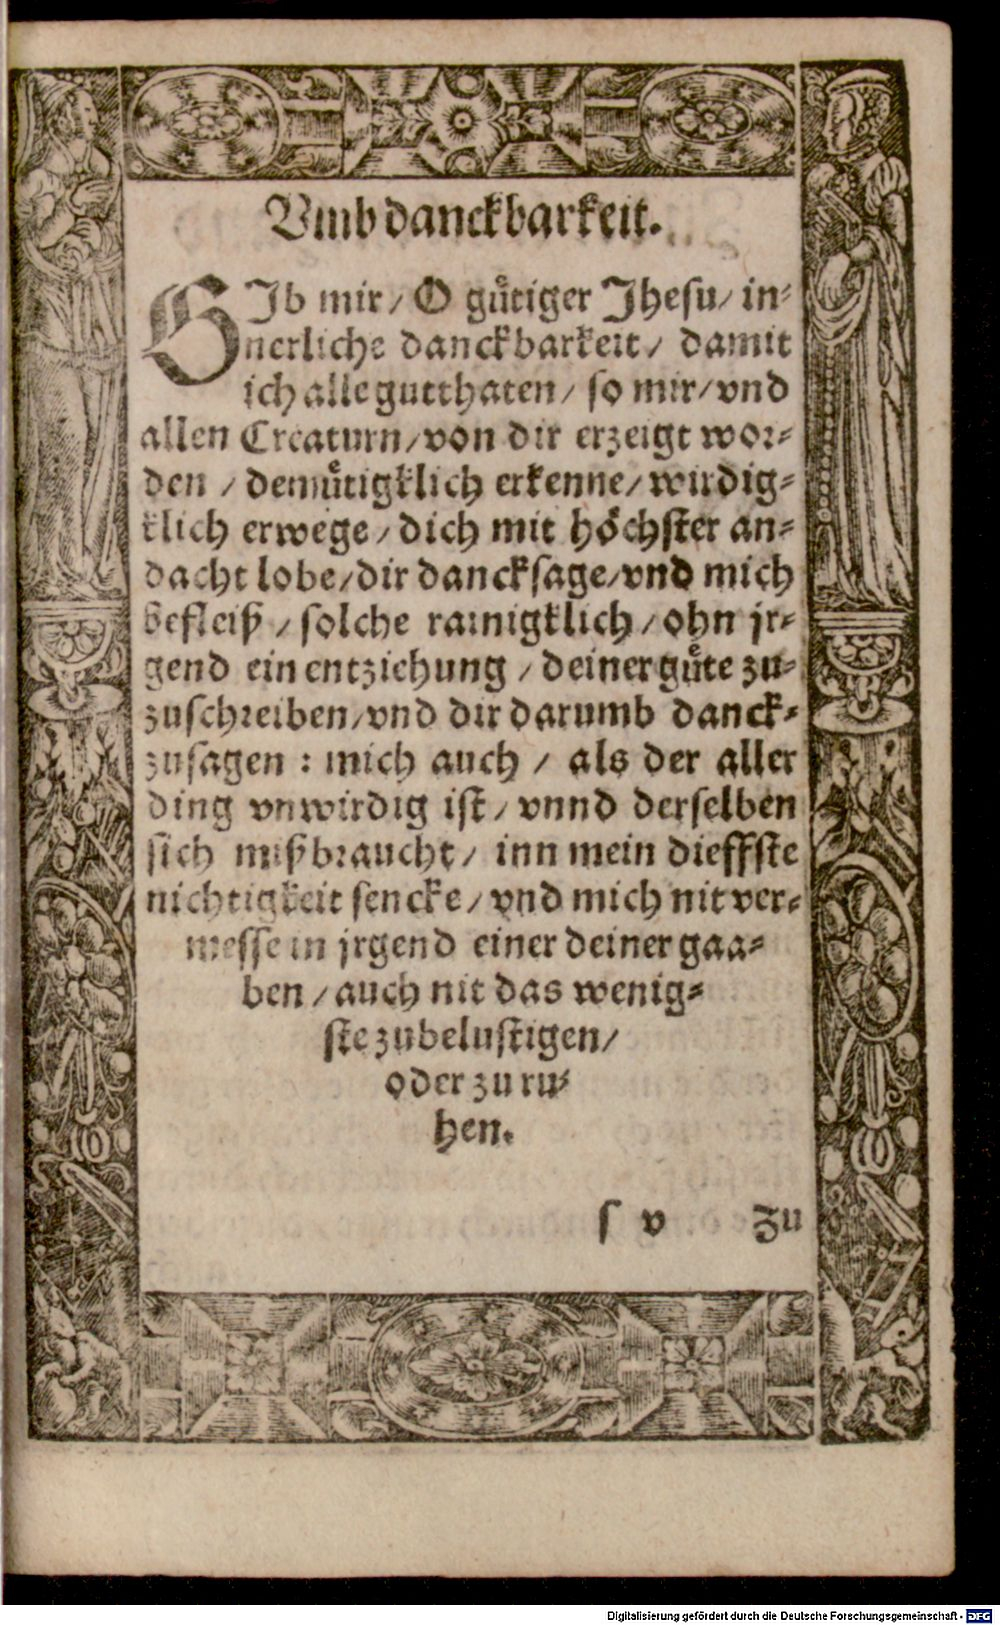 Vmb danckbarkeit.
GIb mir / O guͤtiger Jhesu / in⸗
nerliche danckbarkeit / damit
ich alle gutthaten / so mir / vnd
allen Creaturn / von dir erzeigt wor⸗
den / demuͤtigklich erkenne / wirdig⸗
klich erwege / dich mit hoͤchster an⸗
dacht lobe / dir dancksage / vnd mich
befleiß / solche rainigklich / ohn jr⸗
gend ein entziehung / deiner guͤte zu⸗
zuschreiben / vnd dir darumb danck⸗
zusagen : mich auch / als der aller
ding vnwirdig ist / vnnd derselben
sich mißbraucht / inn mein dieffste
nichtigkeit sencke / vnd mich nit ver⸗
messe in jrgend einer deiner gaa⸗
ben / auch nit das wenig⸗
ste zubelustigen /
oder zu ru⸗
hen.
s v Zu
Digitalisierung gefördert durch die Deutsche Forschungsgemeinschaft - DFG